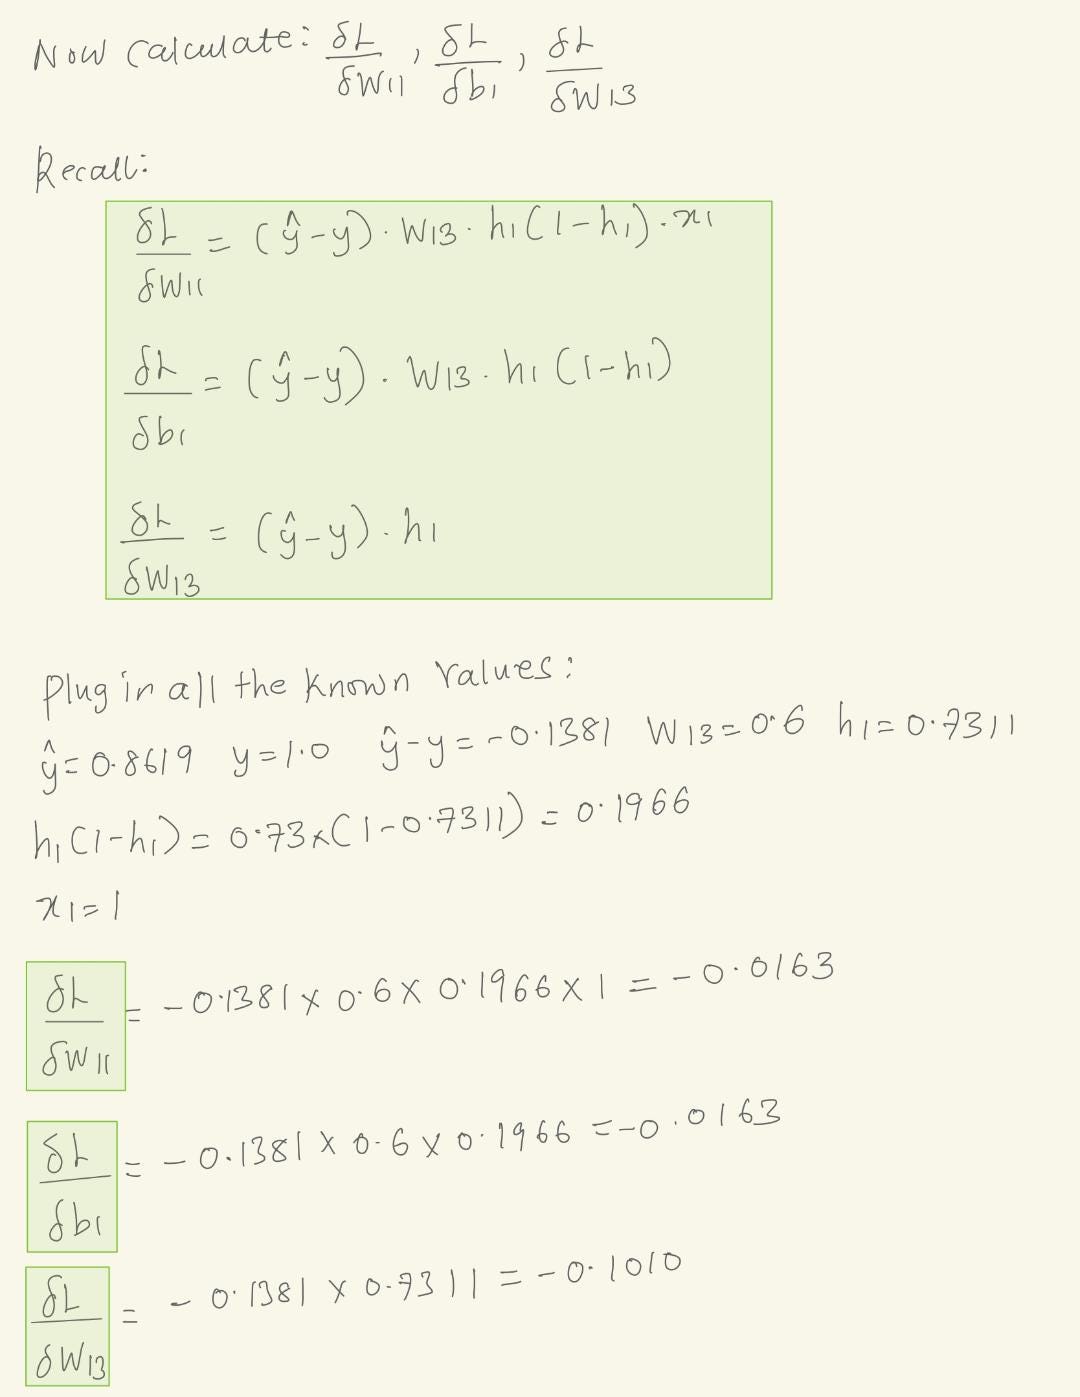 Now calculate: δL/δW11 , δL/δb1 , δL/δW13
Recall:
δL/δW11 = (ŷ-y) · W13 · h1(1-h1) · x1
δL/δb1 = (ŷ-y) · W13 · h1(1-h1)
δL/δW13 = (ŷ-y) · h1
Plug in all the known values:
ŷ=0.8619 y=1.0 ŷ-y=-0.1381 W13=0.6 h1=0.7311
h1(1-h1) = 0.73x(1-0.7311) = 0.1966
x1=1
δL/δW11 = -0.1381 x 0.6 x 0.1966 x 1 = -0.0163
δL/δb1 = -0.1381 x 0.6 x 0.1966 = -0.0163
δL/δW13 = -0.1381 x 0.7311 = -0.1010